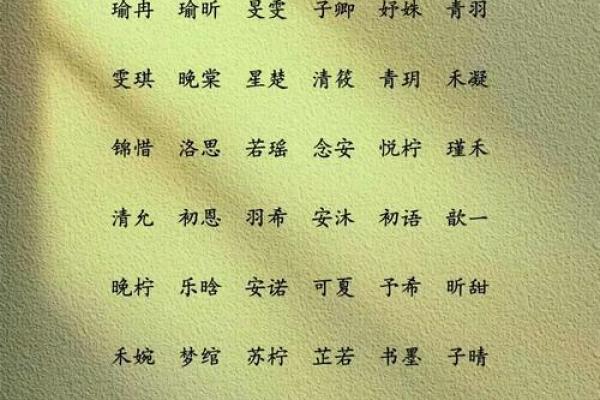 瑜冉 瑜昕 旻雯 子卿 妤姝 青羽
雯琪 晚棠 星楚 清筱 青玥 禾凝
锦惜 洛思 若瑶 念安 悦柠 瑾禾
清允 初恩 羽希 安沐 初语 歆一
晚柠 乐晗 安诺 可夏 予希 昕甜
禾婉 梦绾 苏柠 芷若 书墨 子晴